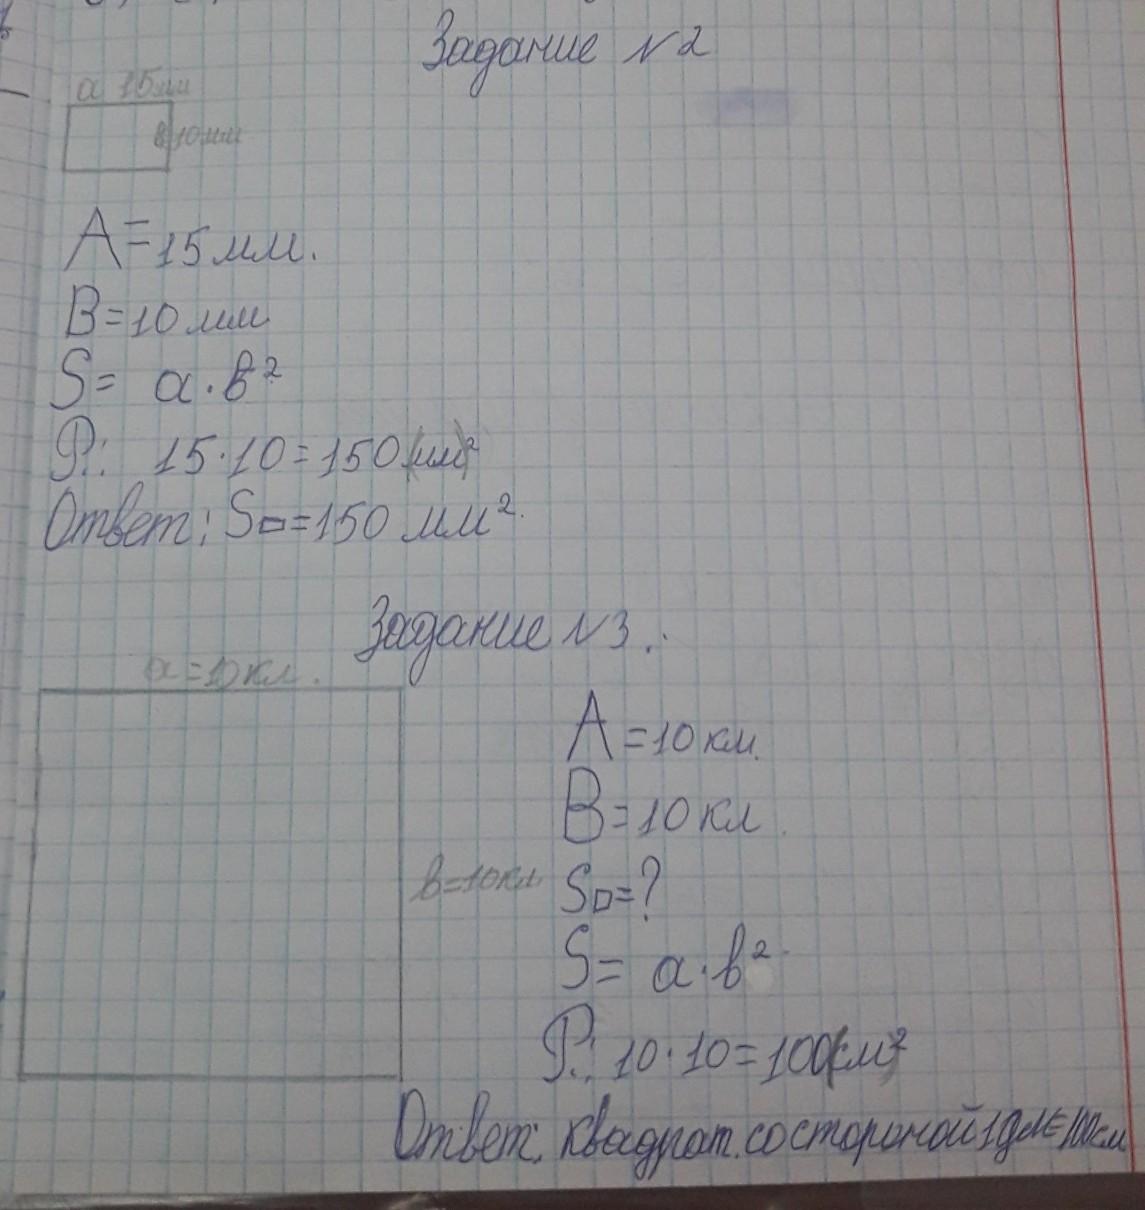 Задание №2
а 15мм
в 10мм
А=15мм.
В=10мм
S= а·в²
Р.: 15·10=150(мм)²
Ответ: S▭=150 мм².
Задание №3.
а=10кл.
А=10км.
В=10кл.
в=10кл.
S▢=?
S= а·в²
Р.: 10·10=100(км)²
Ответ: квадрат со стороной 1дм=100см